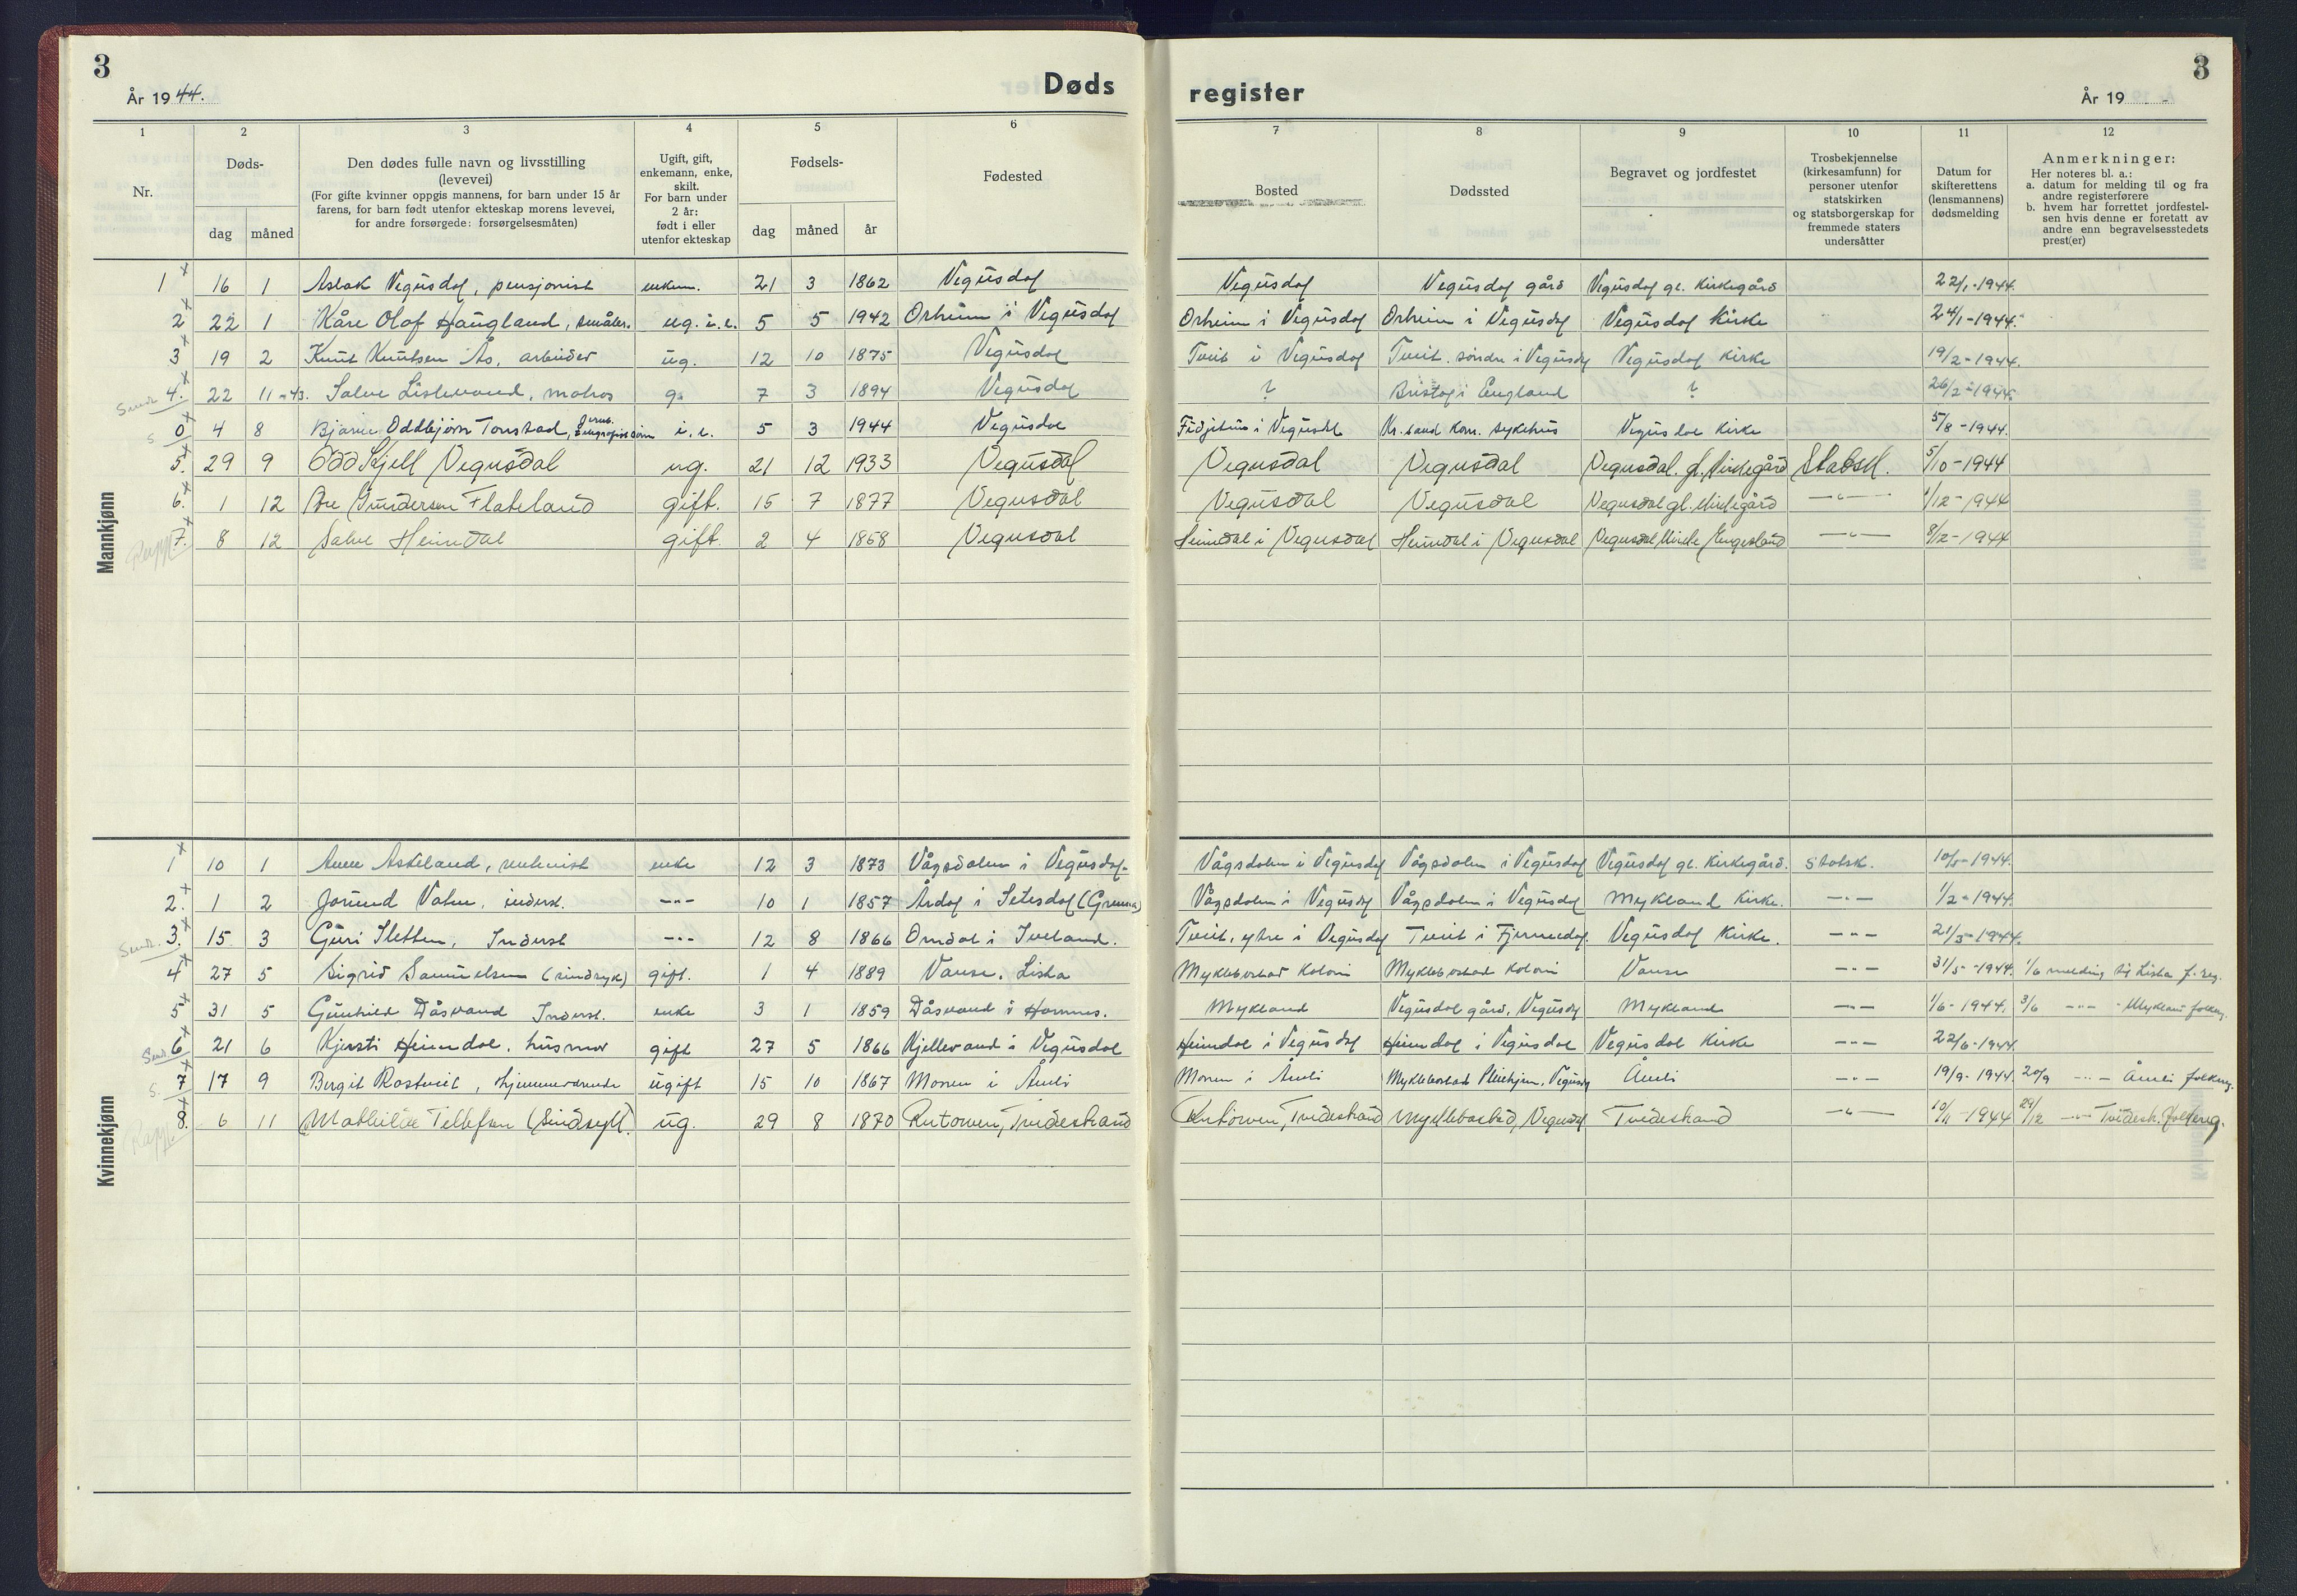 3
År 1944.
Døds
register
År 19
3
1
2
3
4
5
6
7
8
9
10
11
12
Nr.
Døds-
dag
måned
Den dødes fulle navn og livsstilling
(levevei)
(For gifte kvinner oppgis mannens, for barn under 15 år
farens, for barn født utenfor ekteskap morens levevei,
for andre forsørgede: forsørgelsesmåten)
Ugift, gift,
enkemann, enke,
skilt.
For barn under
2 år:
født i eller
utenfor ekteskap
Fødsels-
dag
måned
år
Fødested
Bosted
Dødssted
Begravet og jordfestet
Trosbekjennelse
(kirkesamfunn) for
personer utenfor
statskirken
og statsborgerskap for
fremmede staters
undersåtter
Datum for
skifterettens
(lensmannens)
dødsmelding
Anmerkninger:
Her noteres bl. a.:
a. datum for melding til og fra
andre registerførere
b. hvem har forrettet jordfestel-
sen hvis denne er foretatt av
andre enn begravelsesstedets
prest(er)
Mannkjønn
1 x 16 1 Aslak Vegusdal, pensjonist enkem. 21 3 1862 Vegusdal Vegusdal Vegusdal gård Vegusdal gl. Kirkegård 22/1-1944.
2 x 22 1 Kåre Olof Haugland, småbr. ug. i.e. 5 5 1942 Orheim i Vegusdal Orheim i Vegusdal Orheim i Vegusdal Vegusdal Kirke 24/1-1944.
3 x 19 2 Knut Knutsen Ås, arbeider ug. 12 10 1875 Vegusdal Tveit i Vegusdal Tveit. søndre i Vegusdal Vegusdal Kirke 19/2-1944.
Sendt 4. x 22 11-43. Salve Lislevand, matros g. 7 3 1894 Vegusdal ? Bristol i England ? 26/2-1944.
S 0 x 4 8 Bjarne Oddbjørn Tonstad, i.e. 5 3 1944 Vegusdal i Vegusdal Kr.sand Kom. sykehus Vegusdal Kirke 5/8-1944.
5. x 29 9 Odd Kjell Vegusdal ug. 21 12 1933 Vegusdal Vegusdal Vegusdal Vegusdal. gl. Kirkegård Statsk. 5/10-1944
6. x 1 12 Gundersen Flateland gift. 15 7 1877 Vegusdal Vegusdal Vegusdal Vegusdal gl. Kirkegård —"— 1/12-1944
Rapp. 7. x 8 12 Salve Heimdal gift. 2 4 1858 Vegusdal Heimdal i Vegusdal Heimdal i Vegusdal Vegusdal Kirke Engesland —"— 8/12-1944
Kvinnekjønn
1 x 10 1 Anne Askeland, enke 12 3 1873 Vågsdalen i Vegusdal. Vågsdalen i Vegusdal Vågsdalen i Vegusdal Vegusdal gl. Kirkegård. Statsk. 10/1-1944.
2. x 1 2 Jorund Vatne, inderst. -"- 10 1 1857 Årdal i Setesdal Vågsdalen i Vegusdal Vågsdalen i Vegusdal Mykland Kirke. -"- 1/2-1944.
Sendt. 3. x 15 3 Guri Sletten, Inderst -"- 12 8 1866 Omdal i Iveland. Tveit, ytre i Vegusdal Tveit i Vegusdal Kirke. -"- 21/3-1944.
4 x 27 5 Sigrid Samuelsen (sindsyk) gift. 1 4 1889 Vanse. Lista Myklebostad Koloni Myklebostad Koloni Vanse -"- 31/5-1944. 1/6 melding til Lista f. reg.
5 x 31 5 Gunhild Dåsvand Inderst. enke 3 1 1859 Dåsvand i Hornnes. Mykland Vegusdal gård, Vegusdal Mykland -"- 1/6-1944. 3/6 -"- Mykland folkereg.
Send. 6 x 21 6 Kjersti Heimdal. husmor gift 27 5 1866 Kjellevand i Vegusdal Heimdal i Vegusdal Heimdal i Vegusdal Vegusdal Kirke -"- 22/6-1944.
S. 7 x 17 9 Bergit Rostveit, hjemmeværende ugift 15 10 1867 Monen i Åmli Monen i Åmli Myklebostad Pleiehjem, Vegusdal Åmli -"- 19/9-1944. 20/9 -"- Åmli folkereg.
Rapp. 8. x 6 11 Mathilde Tellefsen (Sindsyk). ug. 29 8 1870 Tvedestrand Tvedestrand Myklebostad, Vegusdal Tvedestrand —"— 10/11-1944 29/12 -"- Tvedestr. folkereg.